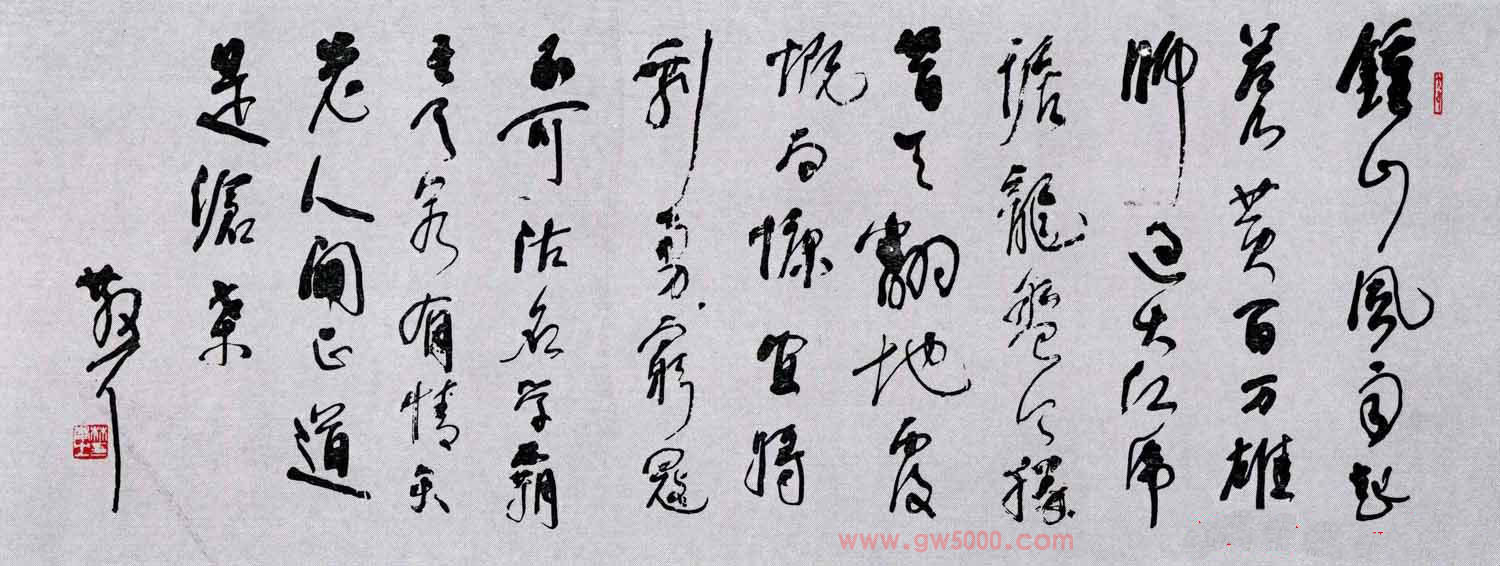 鍾山風雨起
蒼黄百万雄
師过大江虎
踞龍盤今勝
昔天翻地覆
慨而慷宜将
剩勇窮寇
不可沽名学霸
王天若有情天
老人間正道
是滄桑
散耳
www.gw5000.com